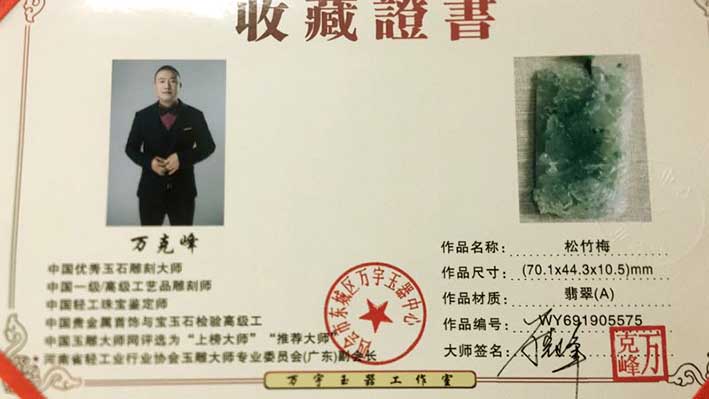 收藏證書
万克峰
中国优秀玉石雕刻大师
中国一级/高级工艺品雕刻师
中国轻工珠宝鉴定师
中国贵金属首饰与宝玉石检验高级工
中国玉雕大师网评选为“上榜大师”“推荐大师”
河南省轻工业行业协会玉雕大师专业委员会(广东)副会长
作品名称: 松竹梅
作品尺寸: (70.1x44.3x10.5)mm
作品材质: 翡翠(A)
作品编号: WY691905575
大师签名:
万克峰
市东城区万宇玉器中心
万宇玉器工作室